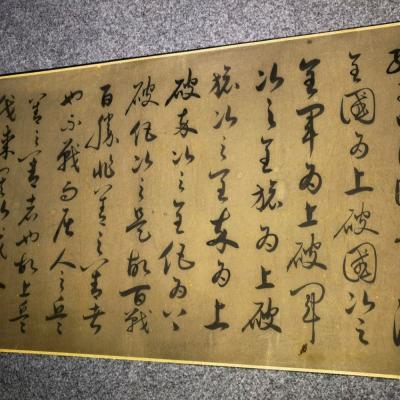 全國为上破國次之
全軍为上破軍
次之全旅为上破
旅次之全卒为上
破卒次之全伍为上
破伍次之是故百戰
百勝非善之善者
也不戰而屈人之兵
善之善者也故上兵